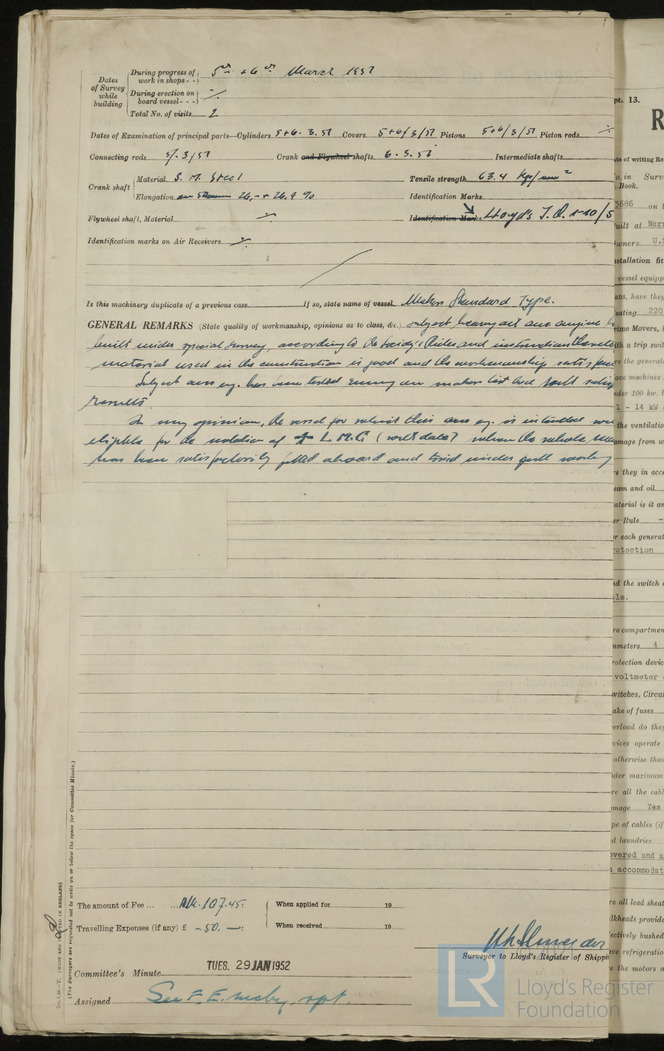 Dates of Survey while building
During progress of work in shops - - 5th + 6th March 1951
During erection on board vessel - - -
Total No. of visits 2
Dates of Examination of principal parts—Cylinders 5+6.3.51 Covers 5+6/3/51 Pistons 5+6/3/51 Piston rods
Connecting rods 5/.3/51 Crank and Flywheel shafts 6.3.51 Intermediate shafts
Crank shaft Material S. M. Steel Tensile strength 63.4 Kgs/mm²
Elongation 26,- + 26.9 % Identification Marks
Flywheel shaft, Material Identification Marks Lloyd's
Identification marks on Air Receivers
Is this machinery duplicate of a previous case If so, state name of vessel Makers Standard Type.
GENERAL REMARKS (State quality of workmanship, opinions as to class, &c.) Subject heavy oil aux engine
built under special survey, according to the Society's Rules and instructions
material used in the construction is good and the workmanship
Subject aux eng. has been tested running on makers test bed with
results.
In my opinion, the vessel for which this aux eng. is intended
eligible for the notation of L.M.C (with date) when the whole
has been satisfactorily fitted aboard and tried under full working
The amount of Fee ... 107.45: When applied for 19
Travelling Expenses (if any) £ -50.-: When received 19
Surveyor to Lloyd's Register of Shipp
Committee's Minute TUES. 29 JAN 1952
Assigned See F. E. rpt.
(The Surveyors are requested not to write on or below the space for Committee Minute.)
Lloyd's Register
Foundation
LR
pt. 13.
R
of writing Re
Book.
5686 on
uilt at Nor
wners U.
stallation fit
vessel equipp
eating 220
rime Movers,
h a trip swit
the generat
ve machines
der 100 kw.
1 - 14 kW
the ventilatio
amage from w
e they in acce
eam and oil
aterial is it a
er Rule
r each generat
otection
d the switch
le.
re compartmen
meters 4
rotection devic
voltmeter
witches, Circui
ake of fuses
erload do the
vices operate
otherwise than
der maximum
re all the cabl
mage Yes
pe of cables (if
d laundries
overed and a
accommodat
re all lead sheat
ulkheads provide
ectively bushed
e refrigeratio
e the motors